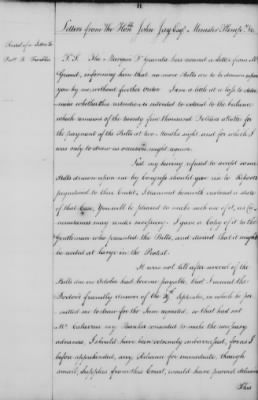 11
Letters from The Honble John Jay Esqr Minister Plenip: &c.
Recital of a Letter to
Doctr B. Franklin
P.S. The Marquis D'Yranda has received a letter from Mr
Grand, informing him that no more Bills are to be drawn upon
you by me without further Orders. I am a little at a loss to deter-
mine whether this intention is intended to extend to the balance
which remains of the twenty five thousand Dollars a Bills for
the payment of the Bills at two Months sight, and for which I
was only to draw as occasion might require.
Lest my having refused to accept some
Bills drawn upon me by Congress should give rise to Reports
prejudicial to their Credit, I transmit herewith enclosed a state
of that Case. You will be pleased to make such use of it, as Cir-
cumstances may render necessary. I gave a Copy of it to the
Gentleman who presented the Bills, and desired that it might
be recited at large in the Protest.
It was not till after several of the
Bills due in October had become payable, that I received the
Doctor's friendly answer of the 2d October, in which he per-
mitted me to draw for the Sum requested, so that had not
Mr Cabarrus my Banker consented to make the necessary
advances, I should have been extremely embarrassed, for as I
before apprehended, any Reliance for immediate, though
small, Supplies from this Court, would have proved delusive
This